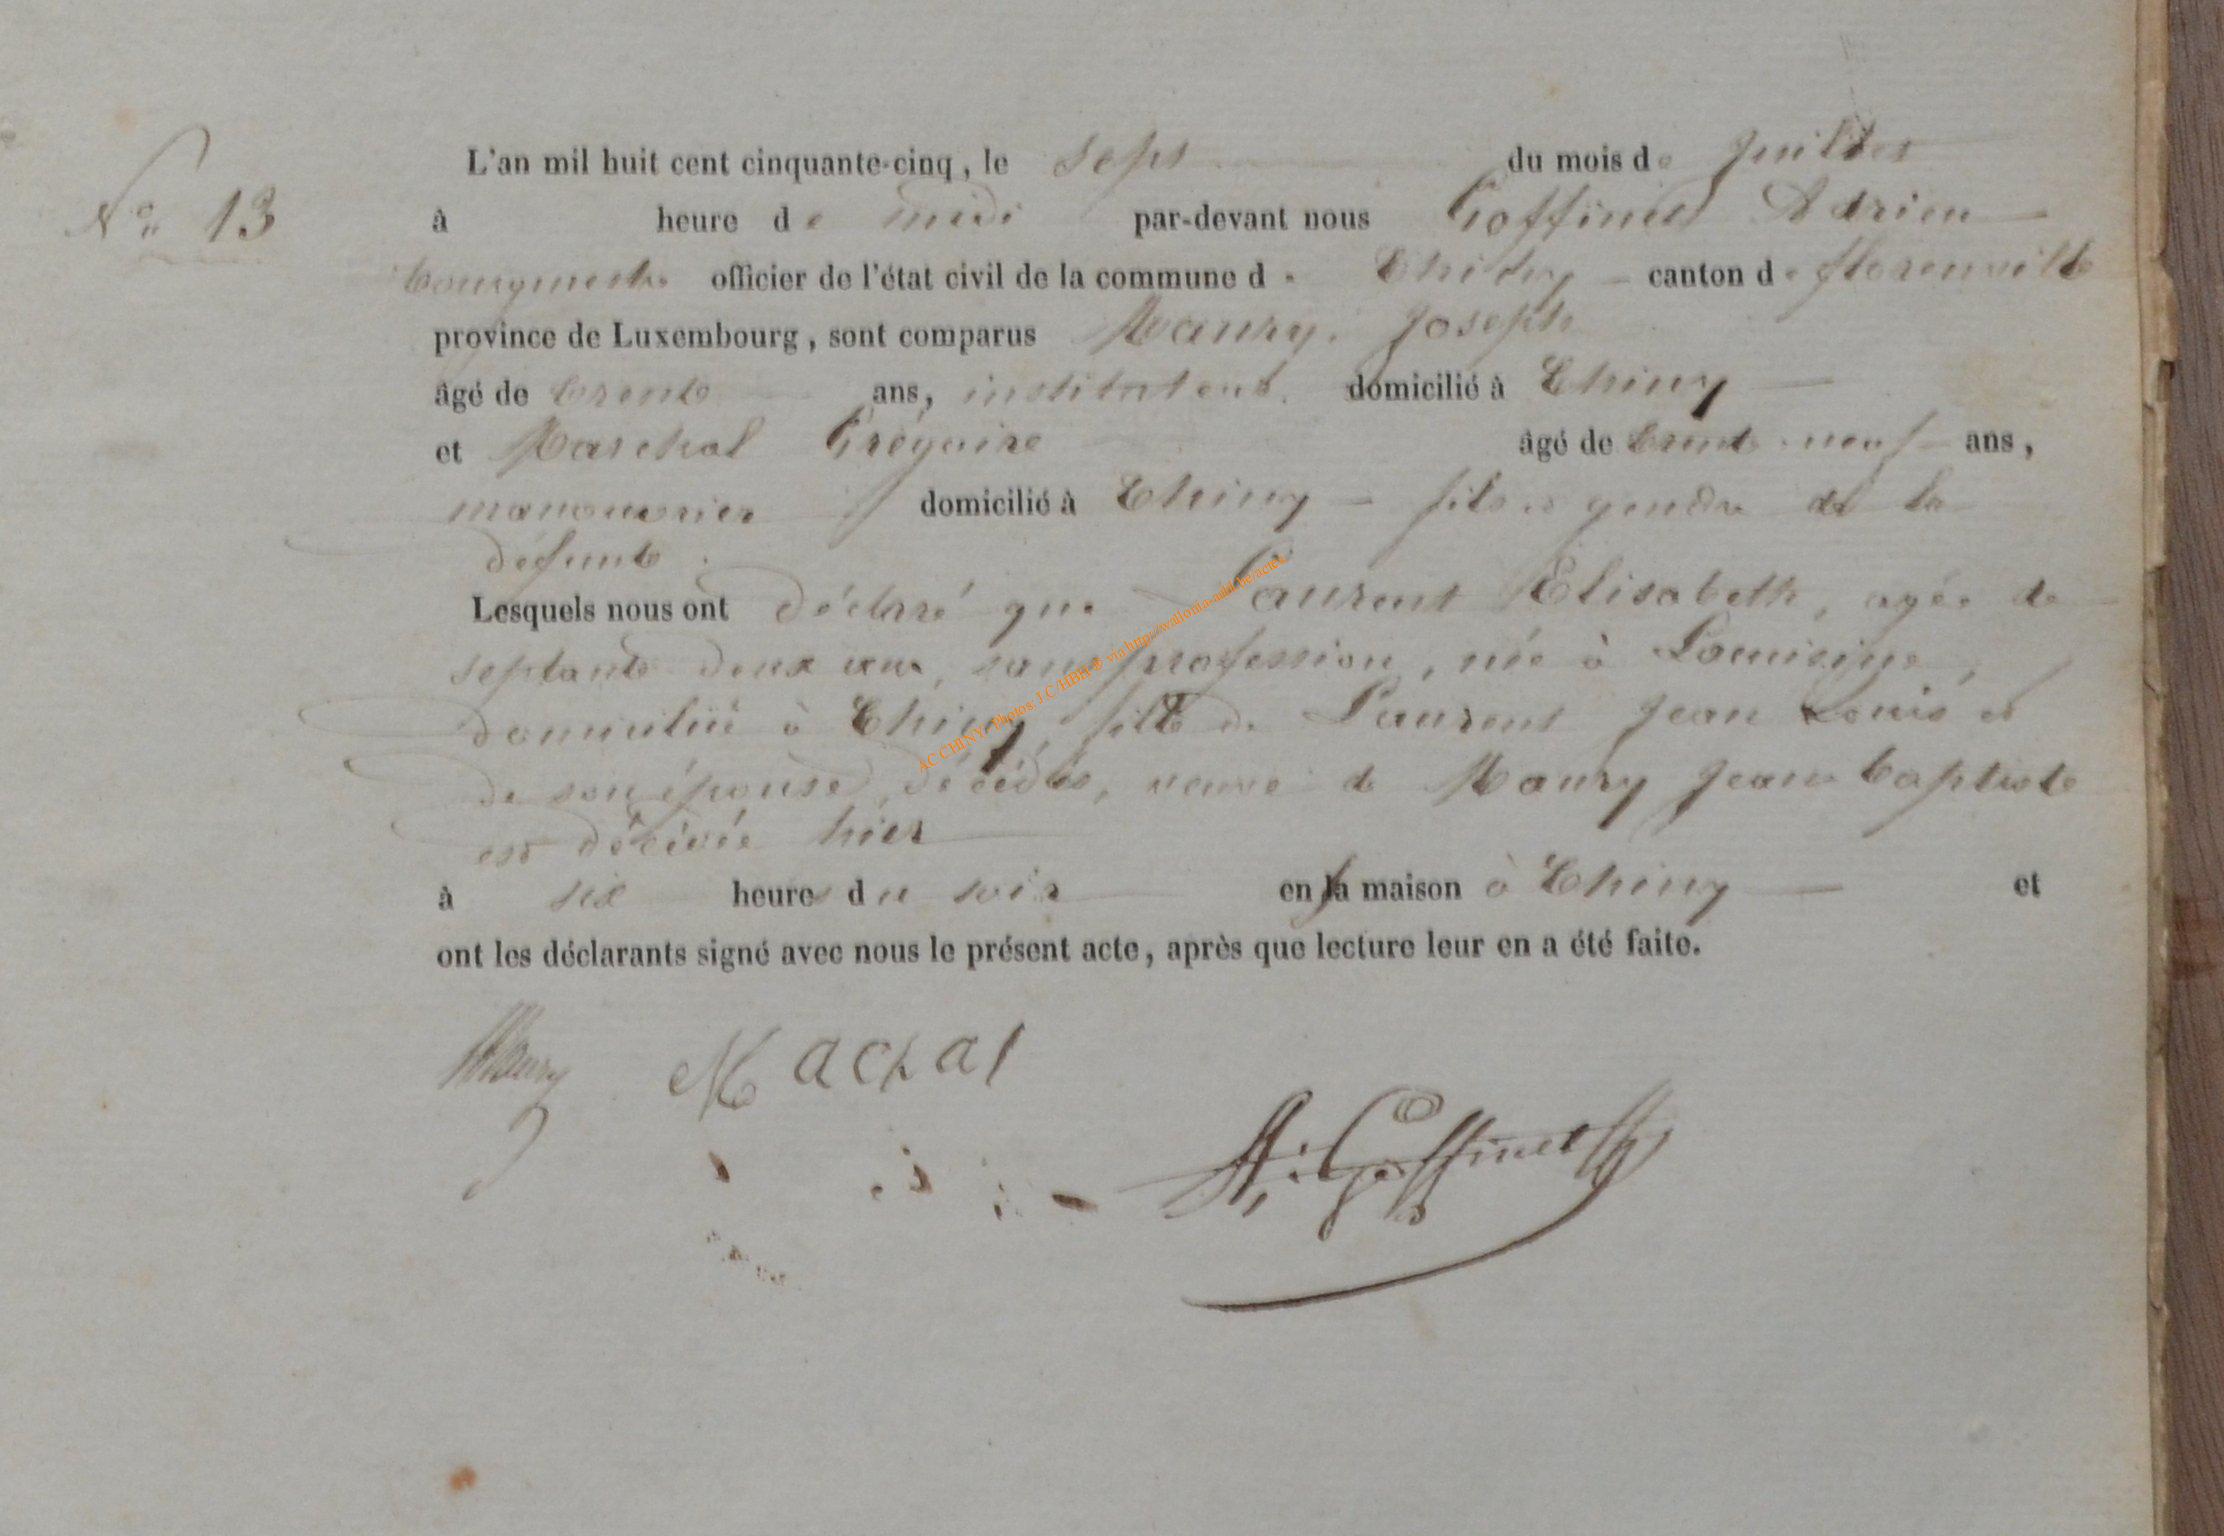 L'an mil huit cent cinquante-cinq, le sept du mois de juillet
N° 13
à heure de midi par-devant nous Goffinet Adrien
bourgmestre officier de l'état civil de la commune de Chiny canton de florenville
province de Luxembourg, sont comparus Maury Joseph
âgé de trente ans, instituteur, domicilié à Chiny
et Marchal Grégoire âgé de trente-neuf ans,
manouvrier domicilié à Chiny fils et gendre de la
défunte.
Lesquels nous ont déclaré que Laurent Elisabeth, agée de
septante deux ans, sans profession, née à
domiciliée à Chiny fille de Laurent Jean Louis et
de son épouse, décédés, veuve de Maury Jean baptiste
est décédée hier
à six heures du soir en sa maison à Chiny et
ont les déclarants signé avec nous le présent acte, après que lecture leur en a été faite.
Maury Machal
A. Goffinet
AC CHINY, Photos: J.C/HBH ® via http://wallonia-asbl.be/actes